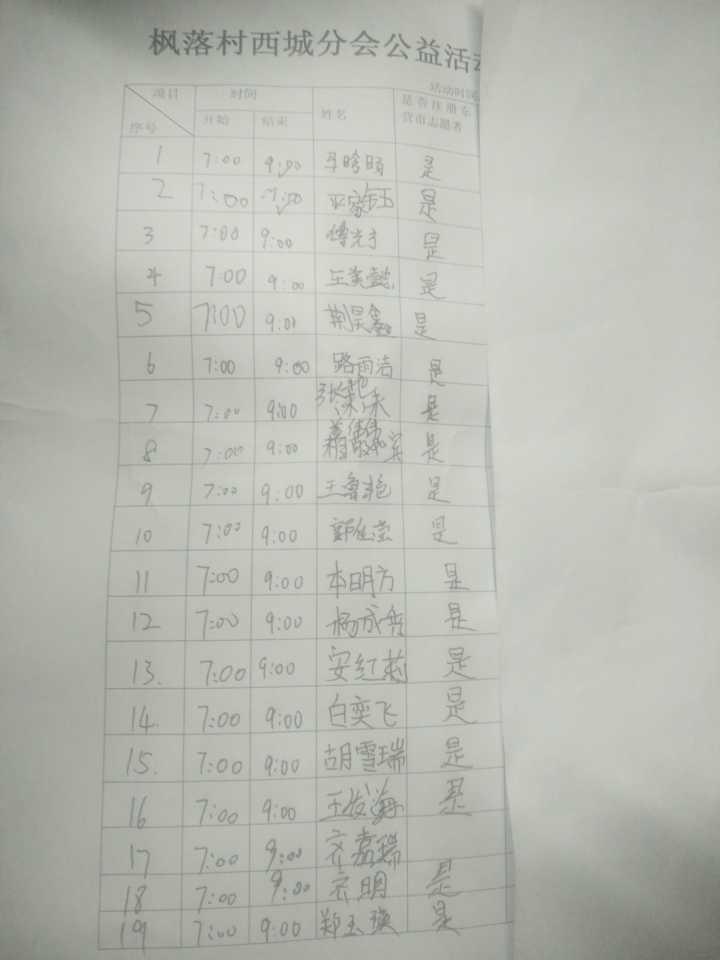 枫落村西城分会公益活动
活动时间
项目 时间 姓名 是否注册东
序号 开始 结束 营市志愿者
1 7:00 9:00 是
2 7:00 是
3 7:00 9:00 傅光才 是
4 7:00 9:00 王美懿 是
5 7:00 9:00 荆昊鑫 是
6 7:00 9:00 路雨洁 是
7 7:00 9:00 是
8 7:00 9:00 是
9 7:00 9:00 王鲁艳 是
10 7:00 9:00 郭佳莹 是
11 7:00 9:00 本明方 是
12 7:00 9:00 杨成秀 是
13. 7:00 9:00 安红莉 是
14. 7:00 9:00 白奕飞 是
15. 7:00 9:00 胡雪瑞 是
16 7:00 9:00 王成海 是
17 7:00 9:00 齐嘉瑞
18 7:00 9:00 是
19 7:00 9:00 郑玉瑛 是